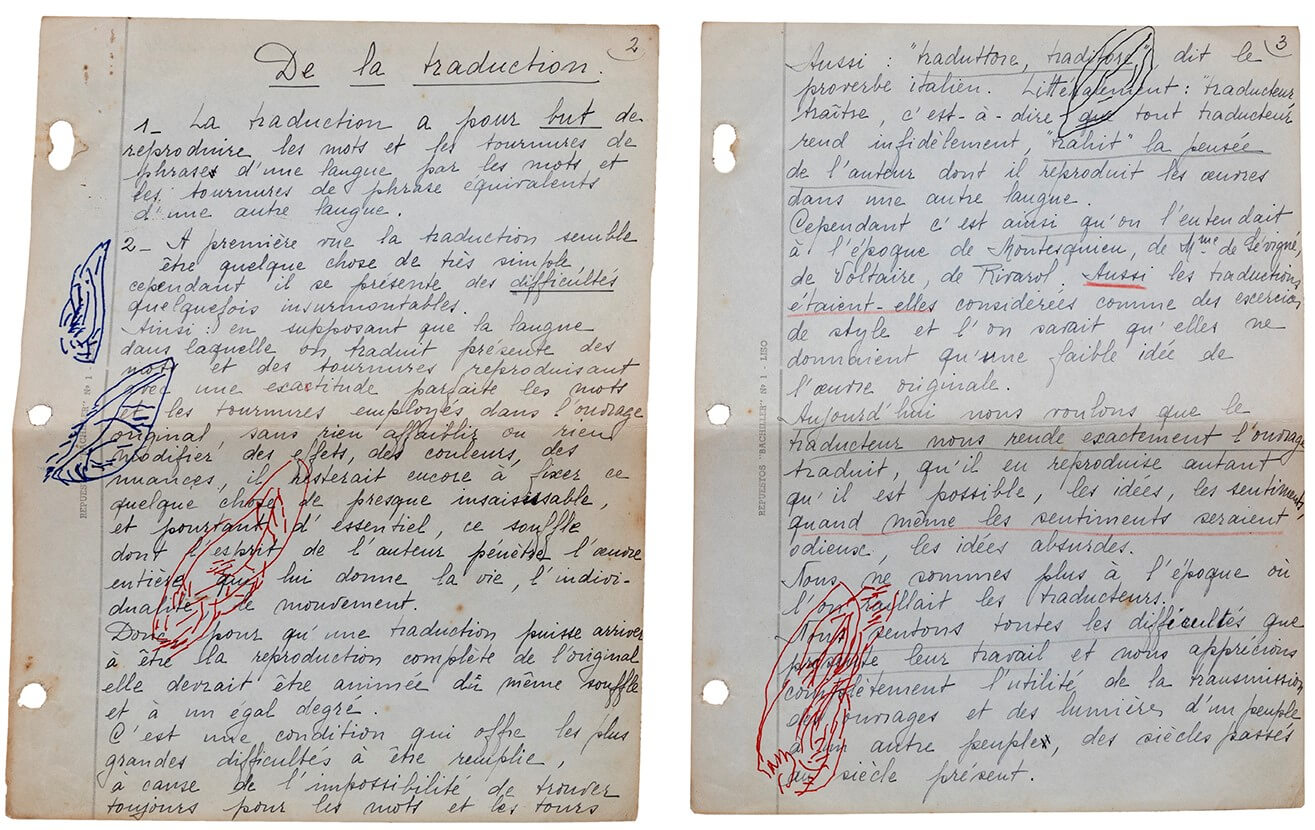 2
De la traduction.
1- La traduction a pour but de
reproduire les mots et les tournures de
phrases d'une langue par les mots et
les tournures de phrase équivalents
d'une autre langue.
2- A première vue la traduction semble
être quelque chose de très simple
cependant il se présente des difficultés
quelquefois insurmontables.
Ainsi : en supposant que la langue
dans laquelle on traduit présente des
mots et des tournures reproduisant
avec une exactitude parfaite les mots
et les tournures employés dans l'ouvrage
original, sans rien affaiblir ou rien
modifier des effets, des couleurs, des
nuances, il resterait encore à fixer ce
quelque chose de presque insaisissable,
et pourtant d'essentiel, ce souffle
dont l'esprit de l'auteur pénètre l'œuvre
entière qui lui donne la vie, l'indivi-
dualité le mouvement.
Donc pour qu'une traduction puisse arriver
à être la reproduction complète de l'original
elle devrait être animée du même souffle
et à un egal degre.
C'est une condition qui offre les plus
grandes difficultés à être remplie,
à cause de l'impossibilité de trouver
toujours pour les mots et les tours
REPUESTOS "BACHILLER" Nº 1
3
Aussi : "traduttore, traditore" dit le
proverbe italien. Littéralement : "traducteur
traître, c'est-à-dire que tout traducteur
rend infidèlement, "trahit" la pensée
de l'auteur dont il reproduit les œuvres
dans une autre langue.
Cependant c'est ainsi qu'on l'entendait
à l'époque de Montesquieu, de Mme de Sévigné,
de Voltaire, de Rivarol. Aussi les traductions
étaient-elles considerées comme des escercices
de style et l'on savait qu'elles ne
donnaient qu'une faible idée de
l'œuvre originale.
Aujourd'hui nous voulons que le
traducteur nous rende exactement l'ouvrage
traduit, qu'il en reproduise autant
qu'il est possible, les idées, les sentiments,
quand même les sentiments seraient
odieux, les idées absurdes.
Nous ne sommes plus à l'époque où
l'on raillait les traducteurs.
Nous sentons toutes les difficultés que
présente leur travail et nous apprécions
complètement l'utilité de la transmission
des ouvrages et des lumières d'un peuple
à un autre peuple, des siècles passés
au siècle présent.
REPUESTOS "BACHILLER" Nº 1 - LISO